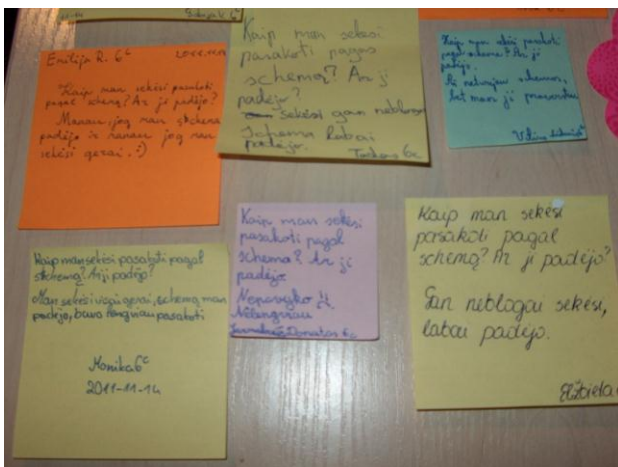 Emilija R. 6c
Kaip man sekėsi pasakoti
pagal schemą? Ar ji padėjo?
Manau, jog man
padėjo ir manau jog man
sekėsi gerai. :)
Kaip man sekėsi
pasakoti pagal
schemą? Ar ji
padėjo?
sekėsi gan neblogai
Schema labai
padėjo.
6c
Kaip man sekėsi pasakoti
pagal schemą? Ar ji
padėjo.
schemos,
bet man ji
Kaip man sekėsi pasakoti pagal
schemą? Ar ji padėjo?
Man sekėsi gerai, schema man
padėjo, buvo lengviau pasakoti
Monika 6c
2011-11-14
Kaip man sekėsi
pasakoti pagal
schema? Ar ji
padėjo
Nepavyko
Nelengviau
Donatas 6c
Kaip man sekėsi
pasakoti pagal
schemą? Ar ji padėjo?
Gan neblogai sekėsi,
labai padėjo.
Elžbieta